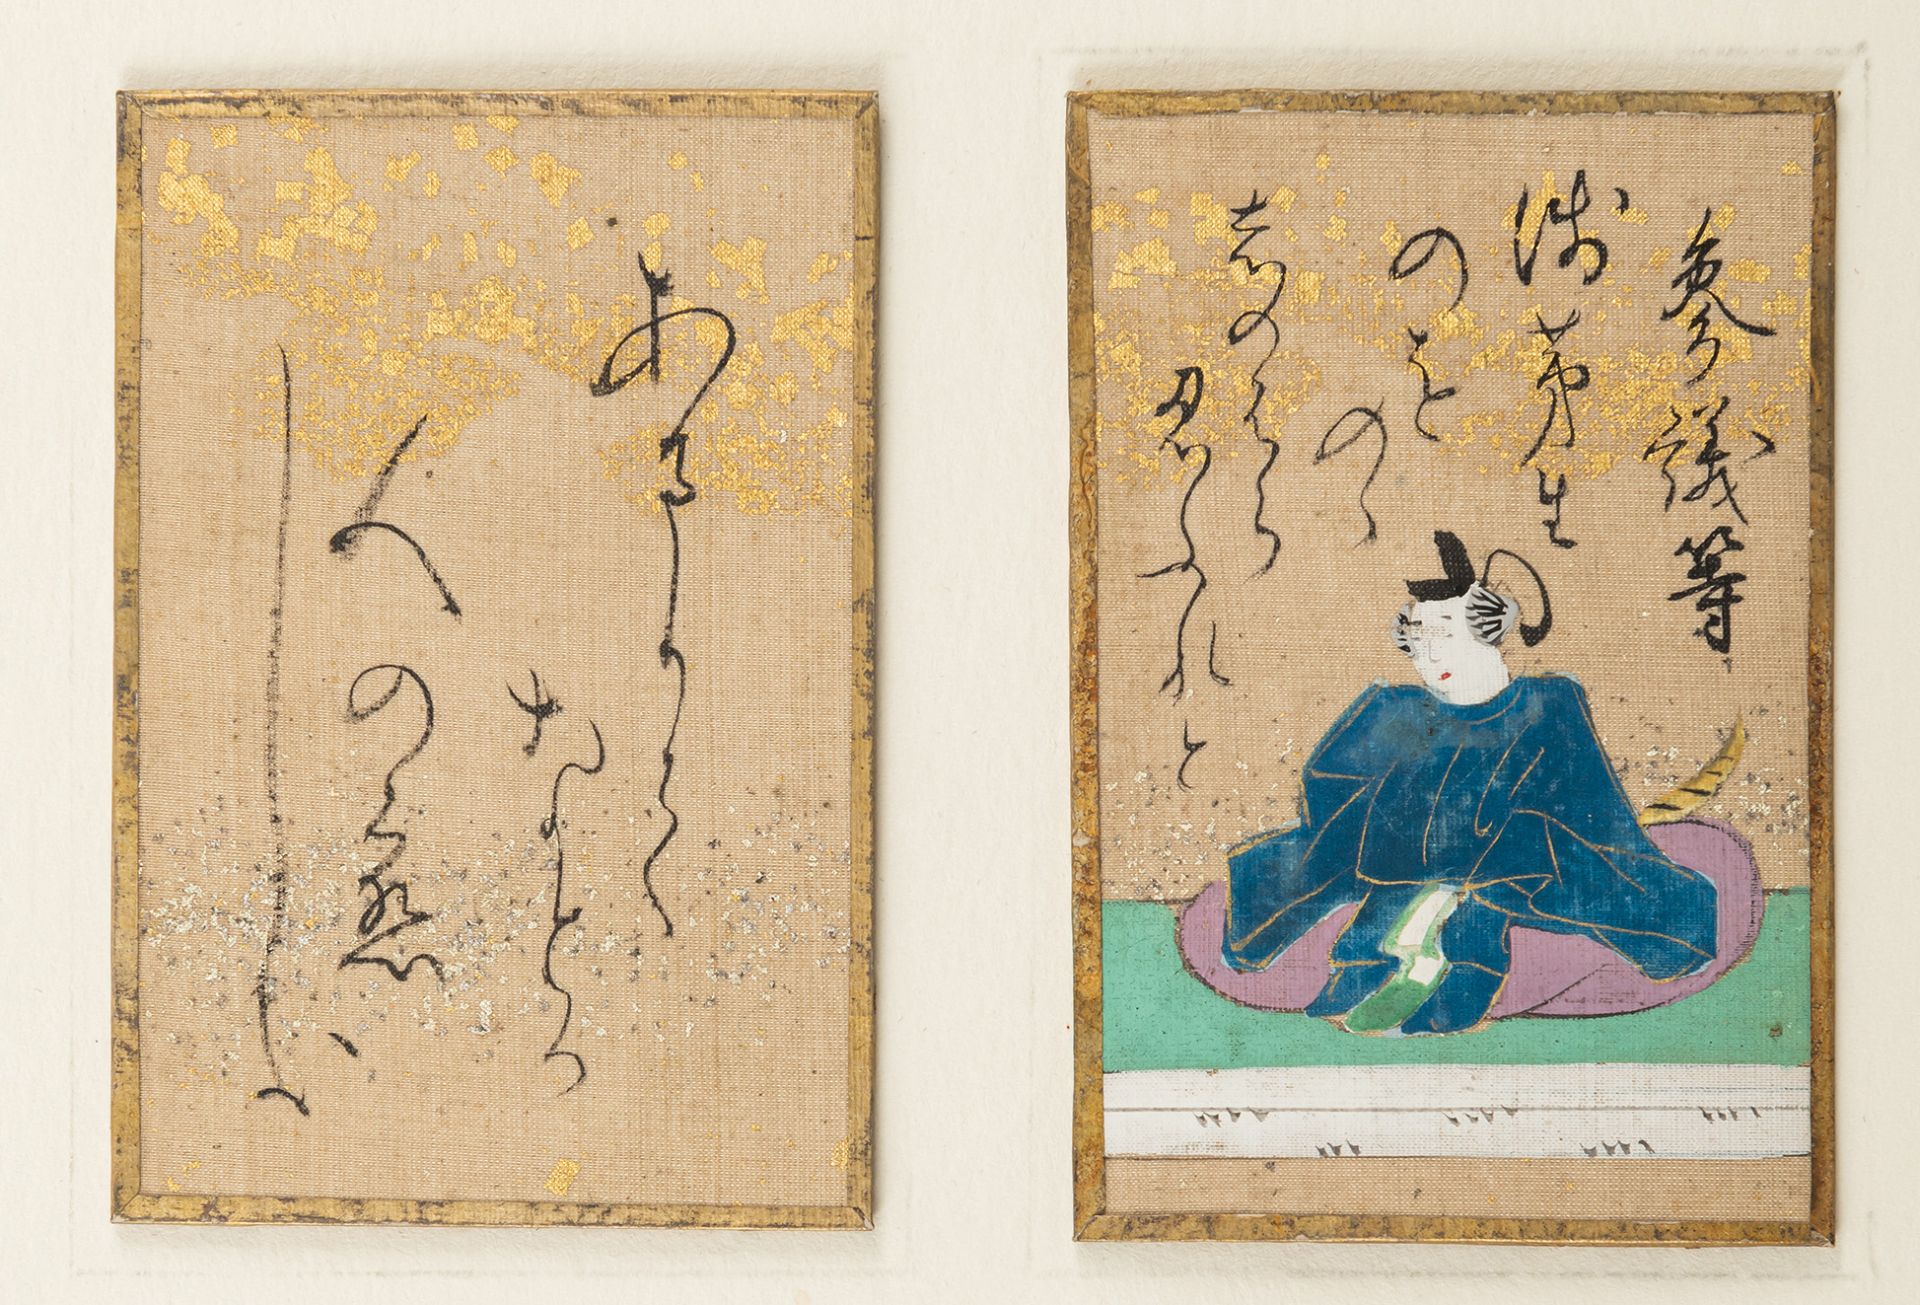 参議等
浅茅生
のを
のゝ
志のはら
忍ふれと
あまりて
なとか
人の恋
しき